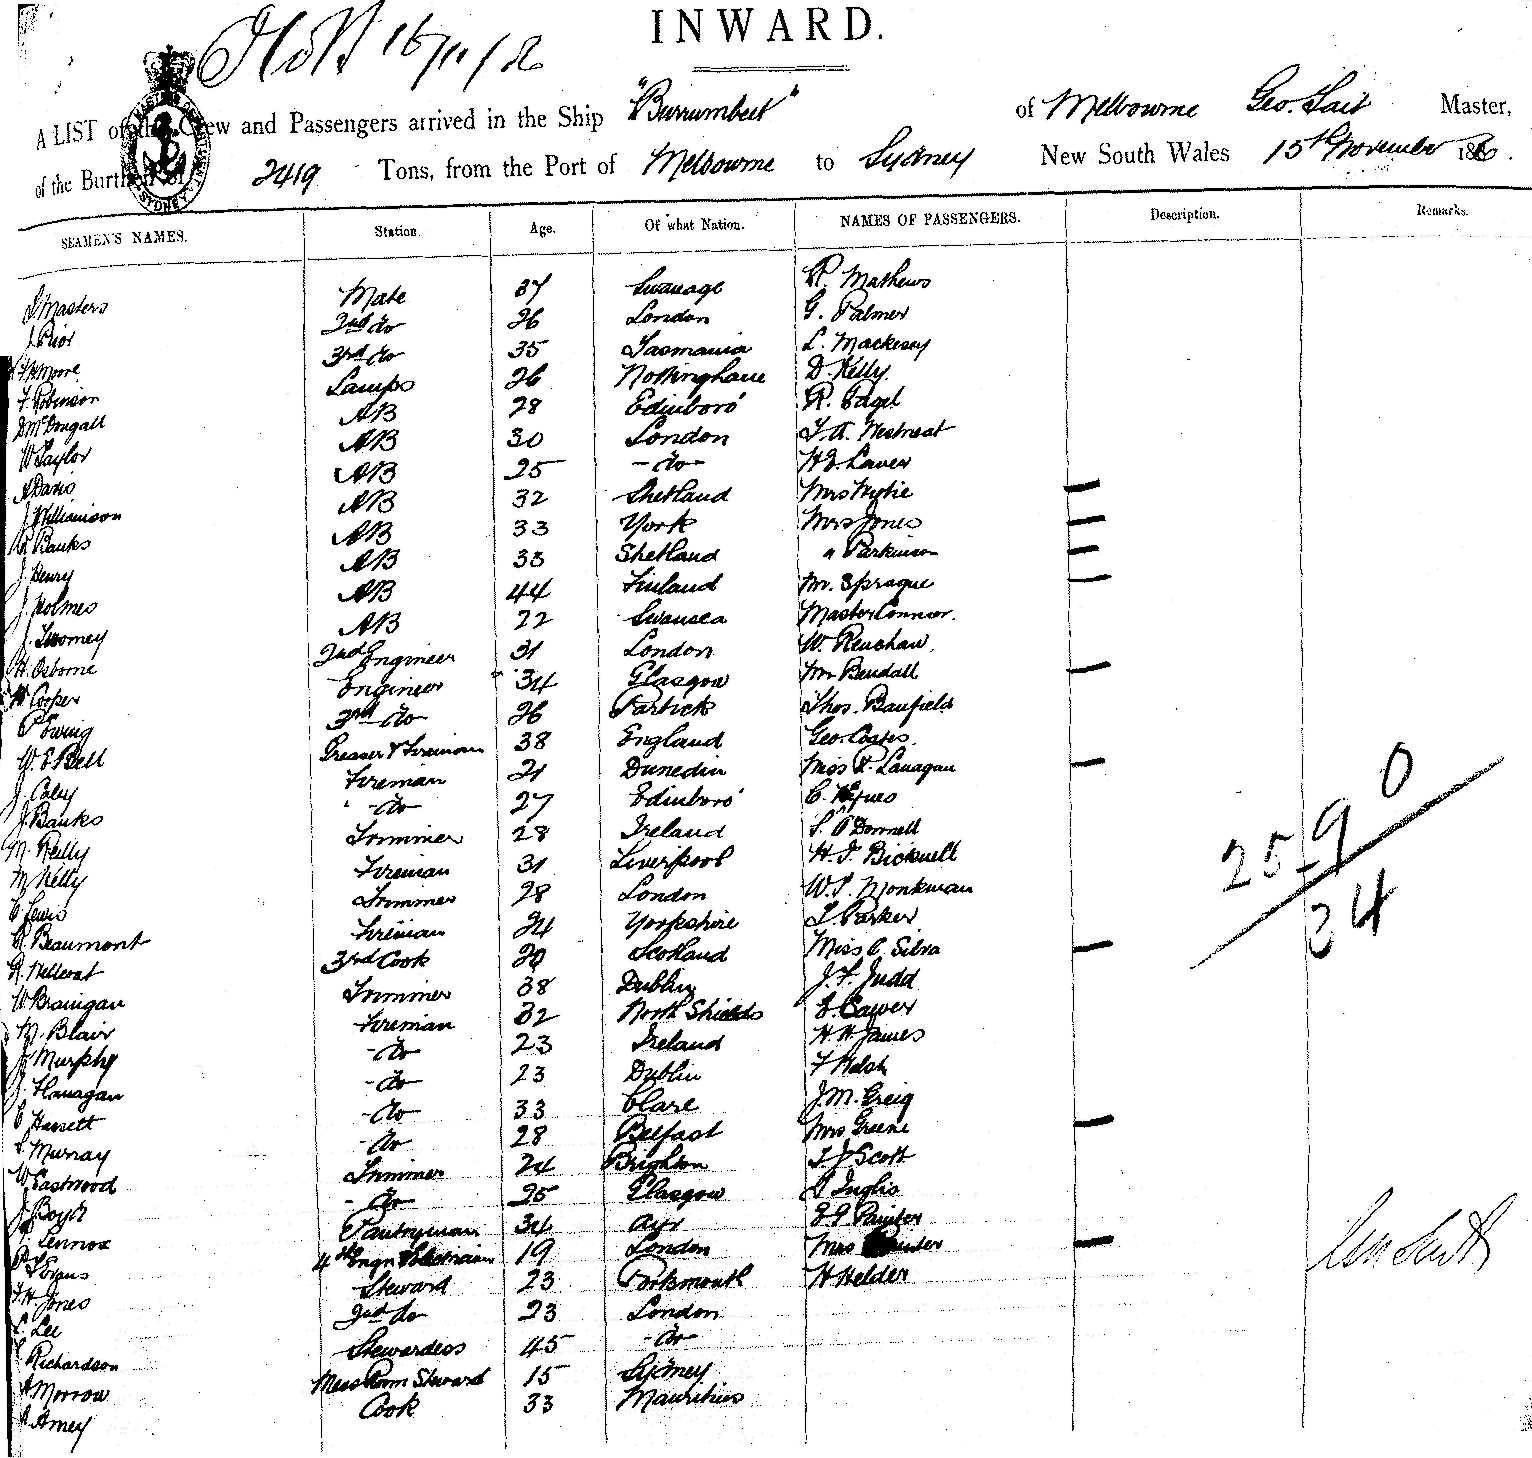 INWARD.
16/11/86
A LIST of the Crew and Passengers arrived in the Ship "Burrumbeet" of Melbourne Geo. Tait Master,
of the Burthen of 2419 Tons, from the Port of Melbourne to Sydney New South Wales 15th November 186.
SEAMEN'S NAMES. Station. Age. Of what Nation. NAMES OF PASSENGERS. Description. Remarks.
Masters Mate 37 Swanage R. Mathews
J Prior 2nd do 26 London G. Palmer
Moore 3rd do 35 Tasmania L. Mackesey
F. Robinson Lamps 26 Nottinghame D. Kelly
D McDougall AB 28 Edinboro' R. Pagel
W Taylor AB 30 London T. A. Westneat
A Davis AB 25 - do - H. J. Laver
J Williamson AB 32 Shetland Mrs Wylie
Banks AB 33 York Mrs Jones
J. Henry AB 33 Shetland " Parkinson
J. Holmes AB 44 Finland Mr. Sprague
J. Twomey AB 22 Swansea Master Connor.
H. Osborne 2nd Engineer 31 London W. Renshaw.
W Cooper Engineer 34 Glasgow Mr Bendall
P Ewing 3rd do 26 Partick Thos. Banfield
W. E Bell Greaser & Fireman 38 England Geo. Coates.
J. Caley Fireman 21 Dunedin Miss R. Lanagan
J. Banks - do 27 Edinboro' C. Hynes
M. Reilly Trimmer 28 Ireland S. O'Donnell
M Kelly Fireman 31 Liverpool H. T. Bicknell
C Lewis Trimmer 28 London W. P. Monkman
R. Beaumont Fireman 24 Yorkshire T. Parker
R. 3rd Cook 20 Scotland Miss C. Silva
W Branigan Trimmer 38 Dublin J. F. Judd
M. Blair Fireman 32 North Shields Sawer
J Murphy - do 23 Ireland H. H. James
J. Flanagan - do 23 Dublin F Walsh
C Hassett - do 33 Clare J. M. Greig
Murray do 28 Belfast Mrs Greene
W Eastwood Trimmer 24 Brighton T J Scott
J Boyd - do 25 Glasgow Inglis
Lennox Pantryman 34 Ayr Painter
Evans 4th Engr 19 London Mrs
F. H. Jones Steward 23 Portsmouth H Helder
Lee 2nd do 23 London
Richardson Stewardess 45 - do
Morrow Mess Room Steward 15 Sydney
Amey Cook 33 Mauritius
0
25 9
34